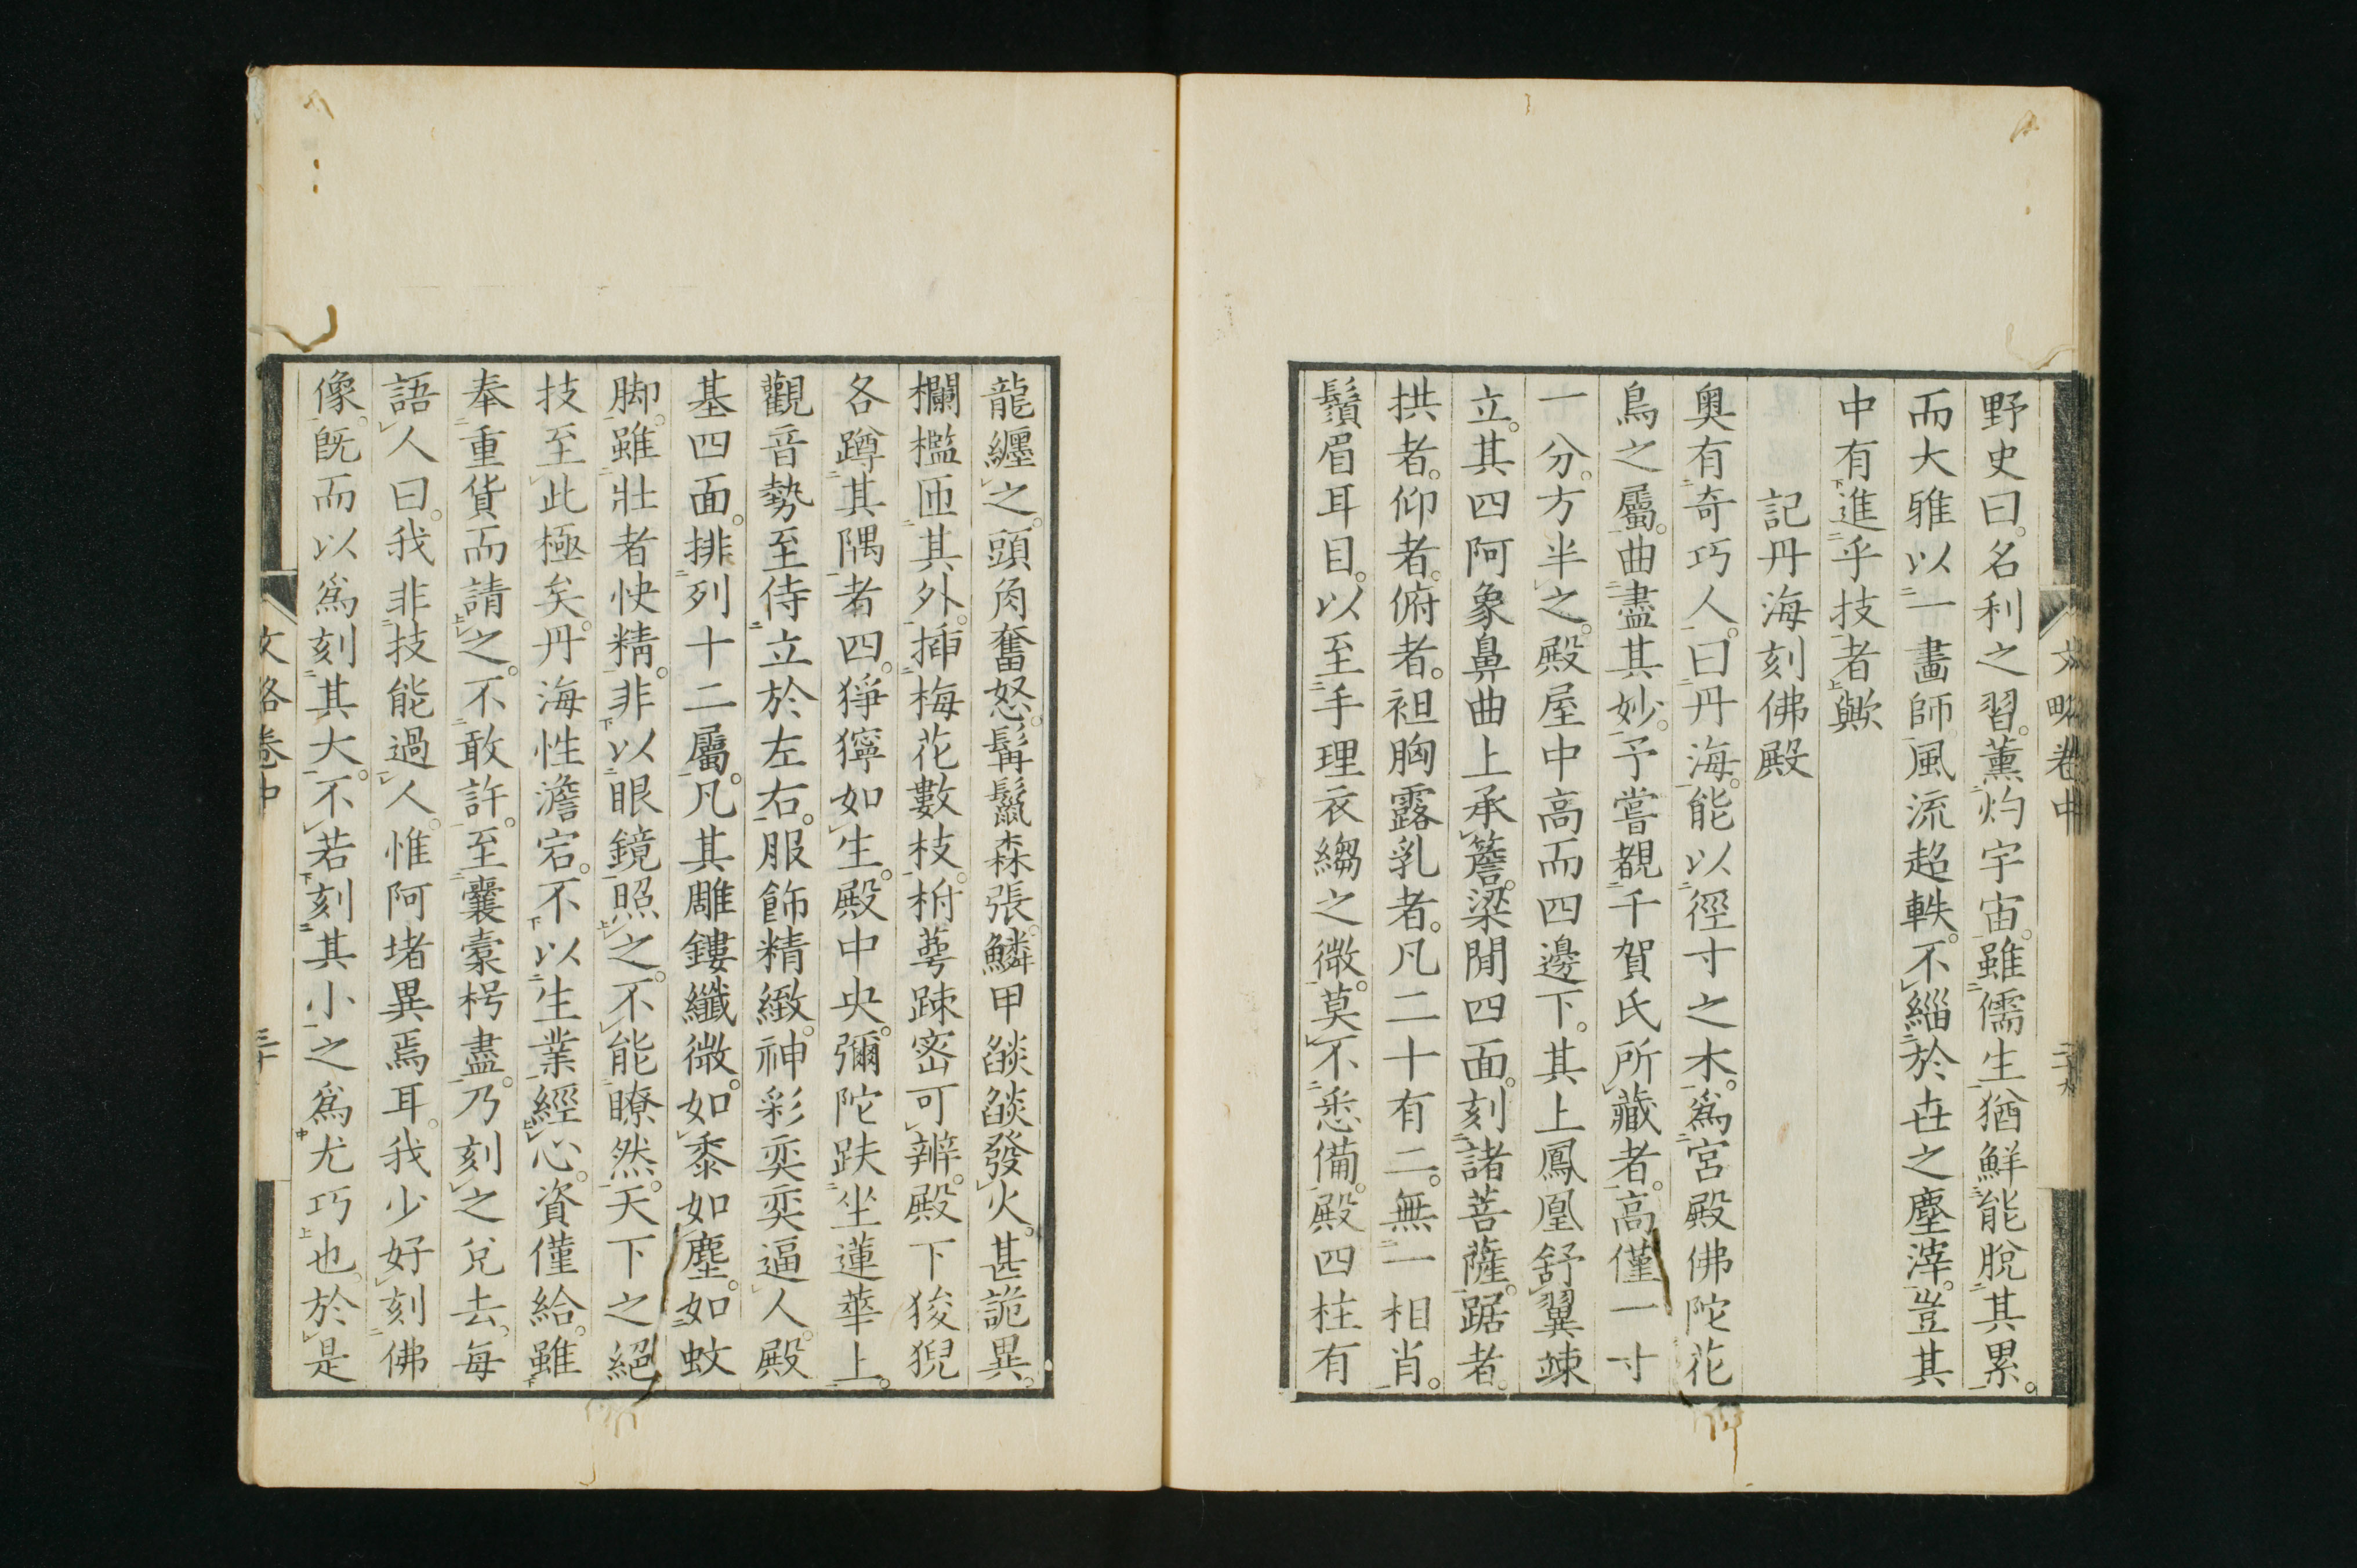 野史曰。名利之習。薰灼宇宙。雖儒生猶鮮能脫其累。
而大雅以一畫師風流超軼。不緇於世之塵滓。豈其
中有進乎技者歟
記丹海刻佛殿
奥有奇巧人。曰丹海。能以徑寸之木。爲宮殿佛陀花
鳥之屬。曲盡其妙。予嘗覩千賀氏所藏者。高僅一寸
一分。方半之。殿屋中高而四邊下。其上鳳凰舒翼竦
立。其四阿象鼻曲上承簷。梁間四面。刻諸菩薩。踞者。
拱者。仰者。俯者。袒胸露乳者。凡二十有二。無一相肖。
鬚眉耳目。以至手理衣縐之微。莫不悉備。殿四柱有
文略卷中
二十九
龍纏之。頭角奮怒。髯鬣森張。鱗甲燄燄發火。甚詭異。
欄檻匝其外。插梅花數枝。柎萼踈密可辨。殿下狻猊
各蹲其隅者四。猙獰如生。殿中央。彌陀趺坐蓮華上。
觀音勢至侍立於左右。服飾精緻。神彩奕奕逼人。殿
基四面。排列十二屬。凡其雕鏤纖微。如黍如塵。如蚊
脚。雖壯者快精。非以眼鏡照之。不能瞭然。天下之絕
技至此極矣。丹海性澹宕。不以生業經心。資僅給。雖
奉重貨而請之。不敢許。至囊橐枵盡。乃刻之兌去。每
語人曰。我非技能過人。惟阿堵異焉耳。我少好刻佛
像。既而以爲刻其大。不若刻其小之爲尤巧也。於是
文略卷中
三十